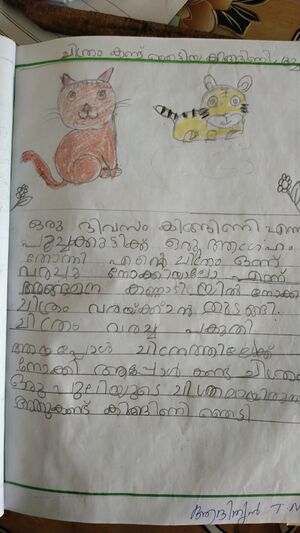 ചിത്രം കണ്ട് ഞെട്ടിയ കിങ്ങിണി പൂച്ച
ഒരു ദിവസം കിങ്ങിണി എന്ന
പൂച്ചക്കുട്ടിക്ക് ഒരു ആഗ്രഹം
തോന്നി എന്റെ ചിത്രം ഒന്ന്
വരച്ചു നോക്കിയാലോ എന്ന്
അങ്ങനെ കണ്ണാടിയിൽ നോക്കി
ചിത്രം വരയ്ക്കാൻ തുടങ്ങി.
ചിത്രം വരച്ച് പകുതി
ആയപ്പോൾ ചിത്രത്തിലേക്ക്
നോക്കി അപ്പോൾ കണ്ട ചിത്രം
ഒരു പുലിയുടെ ചിത്രമായിരുന്നു
അതുകണ്ട് കിങ്ങിണി ഞെട്ടി
T.M